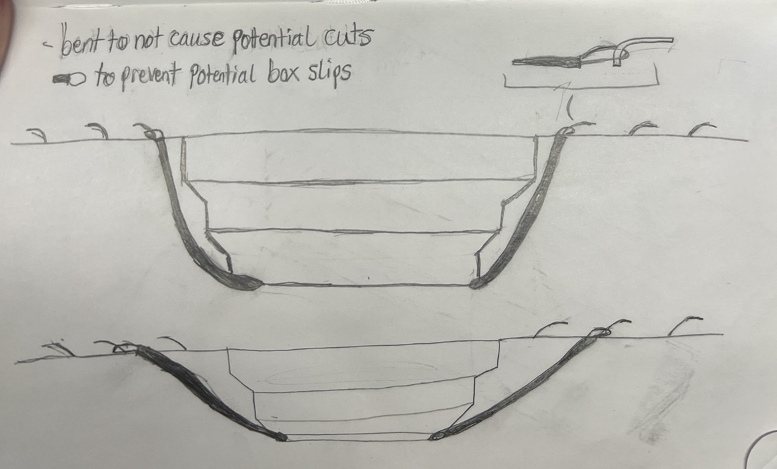 - bent to not cause potential cuts
to prevent potential box slips